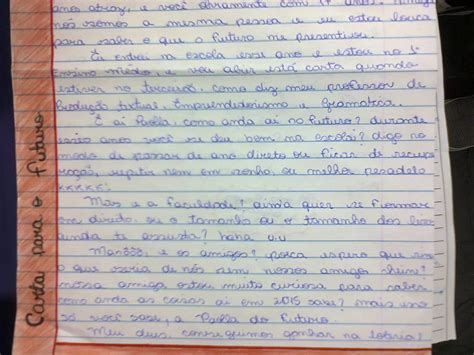 anos atrás, e você obviamente com 17 anos.
nós somos a mesma pessoa e eu estou louca
para saber o que o futuro me presenteou.
Eu entrei na escola esse ano e estou no 1º
Ensino médio, e vou abrir está carta quando
estiver no terceiro, como diz meu professor de
Produção textual, Empreendedorismo e Gramática.
E ai Paolla, como anda ai no futuro? durante
anos você se deu bem na escola? digo no
modo de passar de ano direto ou ficar de recupe
ração, repetir nem em sonho, ou melhor pesadelo
kkkkk!
Mas e a faculdade? ainda quer se formar
em direito, ou o tamanho ou o tamanho dos livros
ainda te assusta? haha
e os amigos? espero que
o que seria de nós sem nossos amigos hein?
nossa amiga estou muito curiosa para saber
como anda as coisas ai em 2015 sabe? mais isso
só você sabe, a Paolla do futuro.
Meu deus, conseguimos ganhar na loteria?
Carta para o futuro